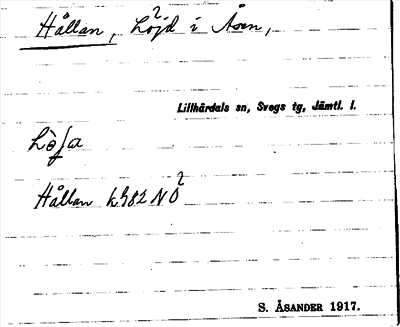 Hållan, Löjd i Åsen,
Lillhärdals sn, Svegs tg, Jämtl. l.
Hållan k982 NO
S. ÅSANDER 1917.